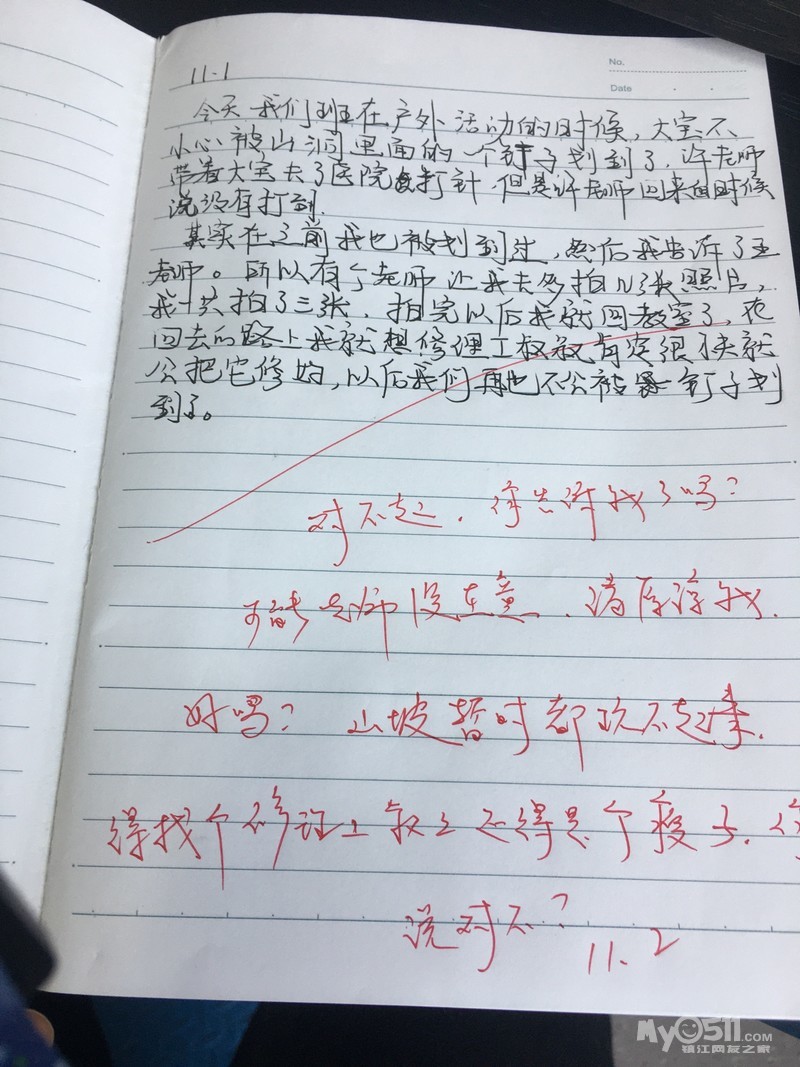 No.
Date
11.1
今天我们班在户外活动的时候,大宝不
小心被山洞里面的一个钉子划到了,许老师
带着大宝去了医院打针,但是许老师回来的时候
说没有打到.
其实在之前我也被划到过,然后我告诉了王
老师。所以有个老师让我去多拍几张照片,
我一共拍了三张,拍完以后我就回教室了,在
回去的路上我就想修理工叔叔肯定很快就
会把它修好,以后我们再也不会被钉子划
到了。
对不起.你告诉我了吗?
可能老师没在意.请原谅我.
好吗?山坡暂时都玩不起来.
得找个修理工叔还得是个瘦子.你
说对不?
11.2
My0511.COM
镇江网友之家